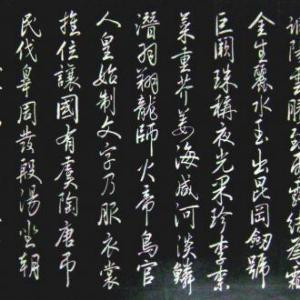 調陽雲騰致雨露結為霜
金生麗水玉出昆岡劍號
巨闕珠稱夜光果珍李柰
菜重芥姜海咸河淡鱗
潛羽翔龍師火帝鳥官
人皇始制文字乃服衣裳
推位讓國有虞陶唐弔
民伐辠周發殷湯坐朝